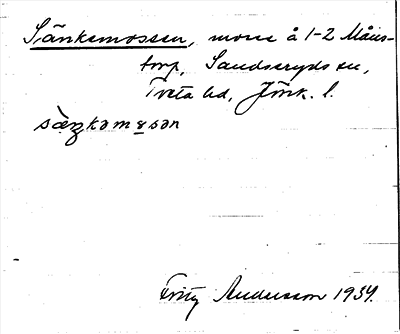 Sänkemossen, mosse å 1-2 Måns-
torp, Sandseryds sn,
Tveta hd, Jönk. l.
sàŋkamosən
Fritz Andersson 1934.